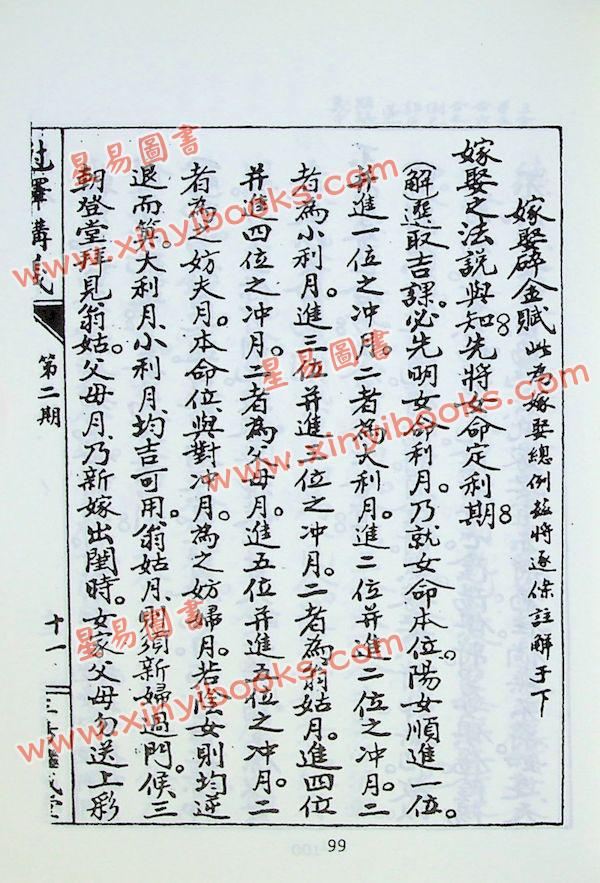 嫁娶碎金賦此為嫁娶總例茲將逐條註解于下
嫁娶之法說與知。先將女命定利期。
(解選取吉課。必先明女命利月。乃就女命本位。陽女順進一位。
并進一位之冲月。二者為大利月。進二位并進二位之冲月。二
者為小利月。進三位并進三位之冲月。二者為翁姑月。進四位
并進四位之冲月。二者為父母月。進五位并進五位之冲月。二
者為之妨夫月。本命位與對冲月。為之妨婦月。若陰女則均逆
退而算。大利月。小利月。均吉可用。翁姑月。則須新婦過門。候三
朝登堂拜見翁姑。父母月。乃新嫁出閨時。女家父母勿送上彩
講義
第二期
十一
99
星易圖書
www.xinyibooks.com
星易圖書
www.xinyibooks.com
星易圖書
www.xinyibooks.com